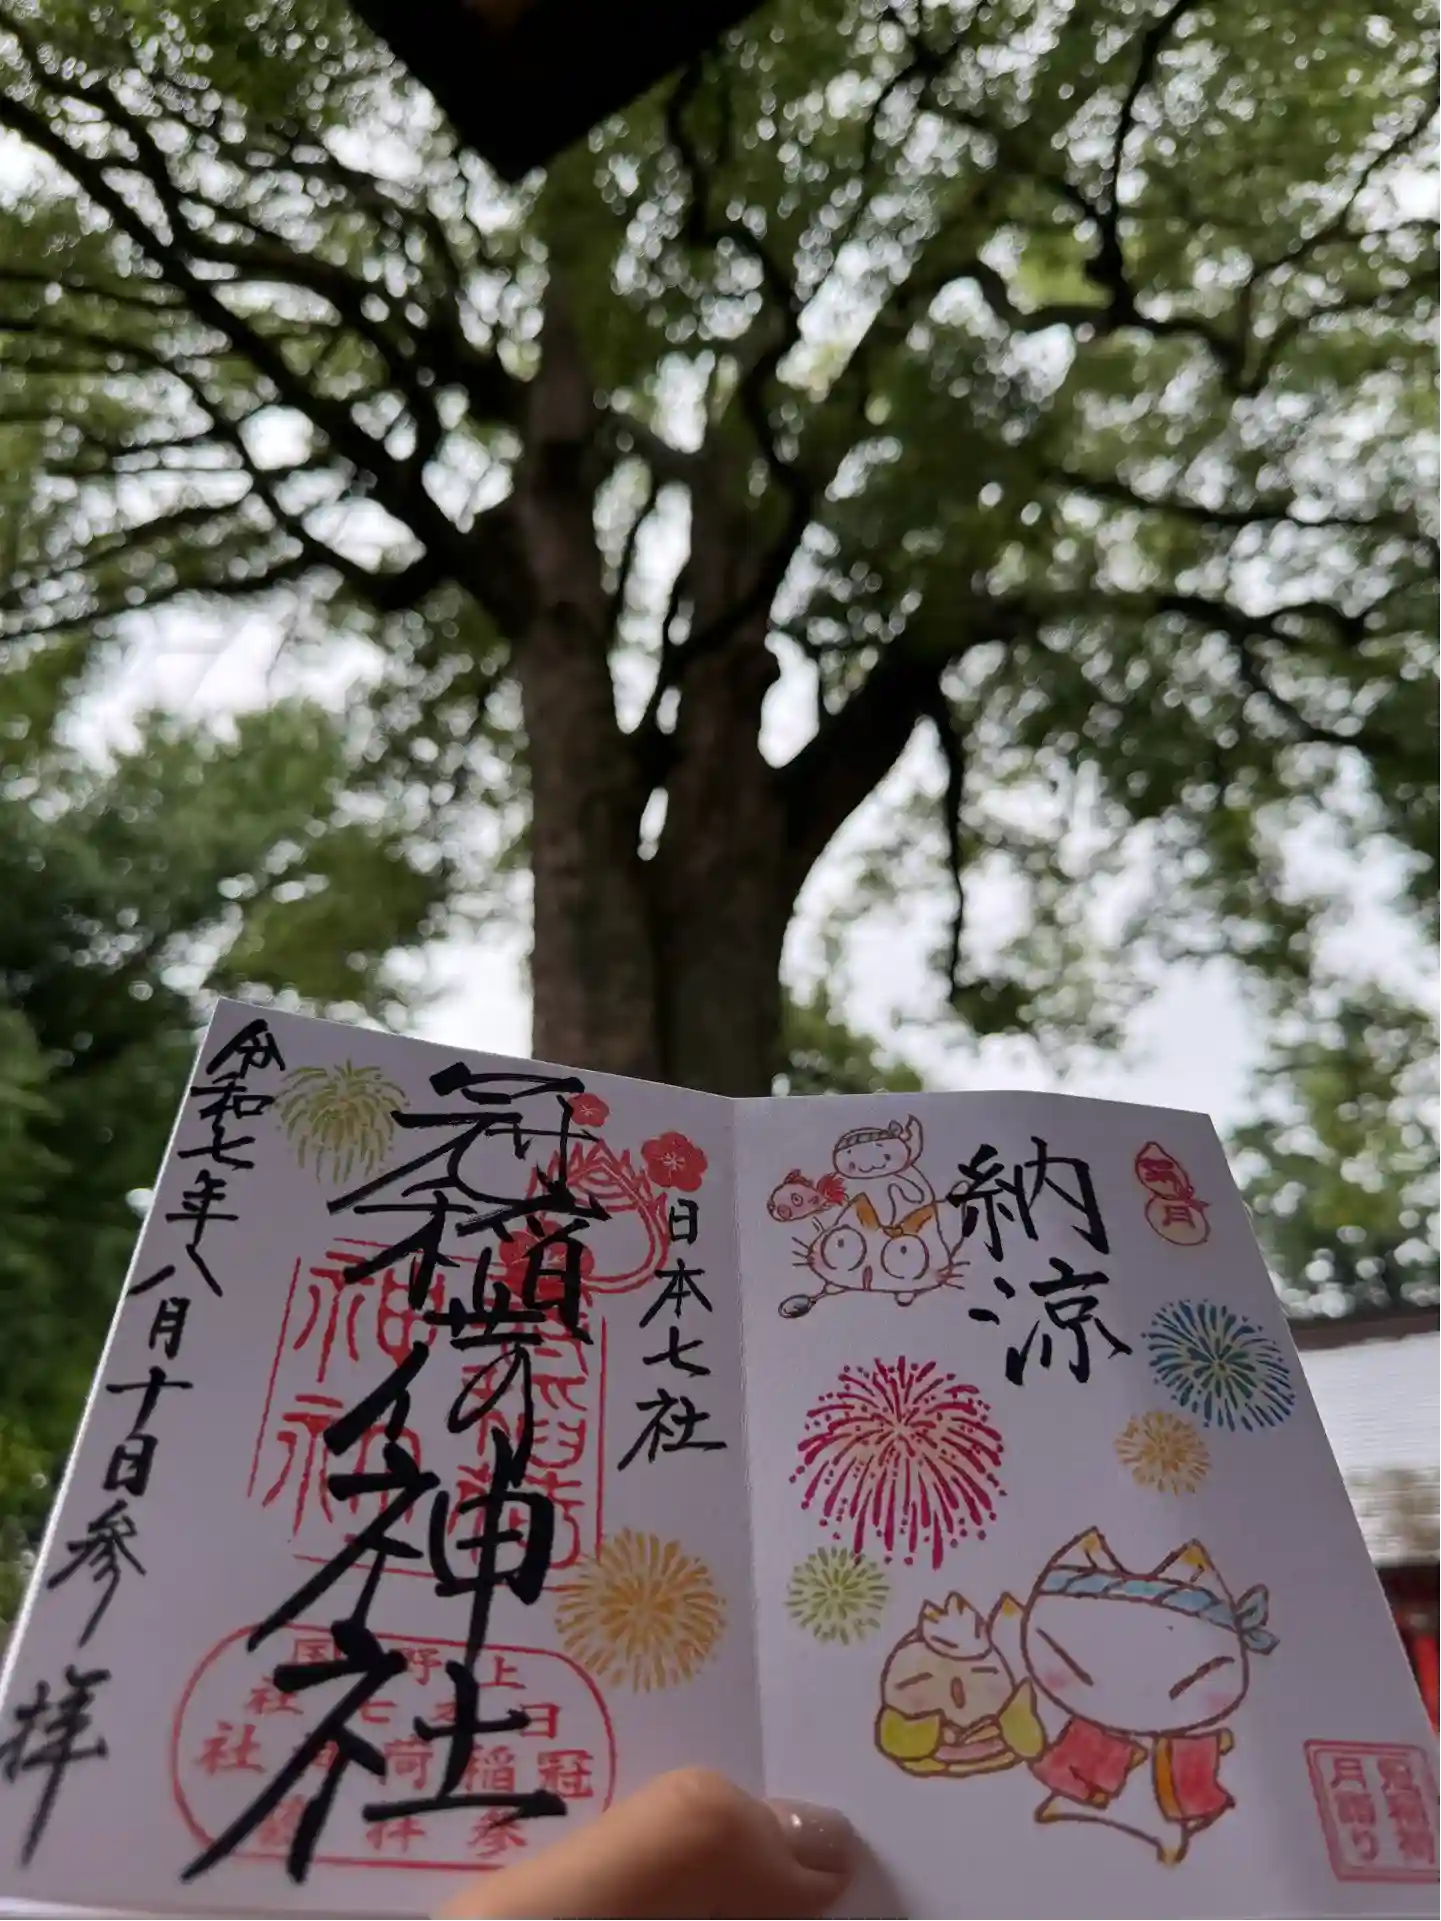 納涼
冠稲荷
月詣り
日本七社
冠稲荷神社
上野国
日本七社
冠稲荷神社
参拝
令和七年八月十日参拝